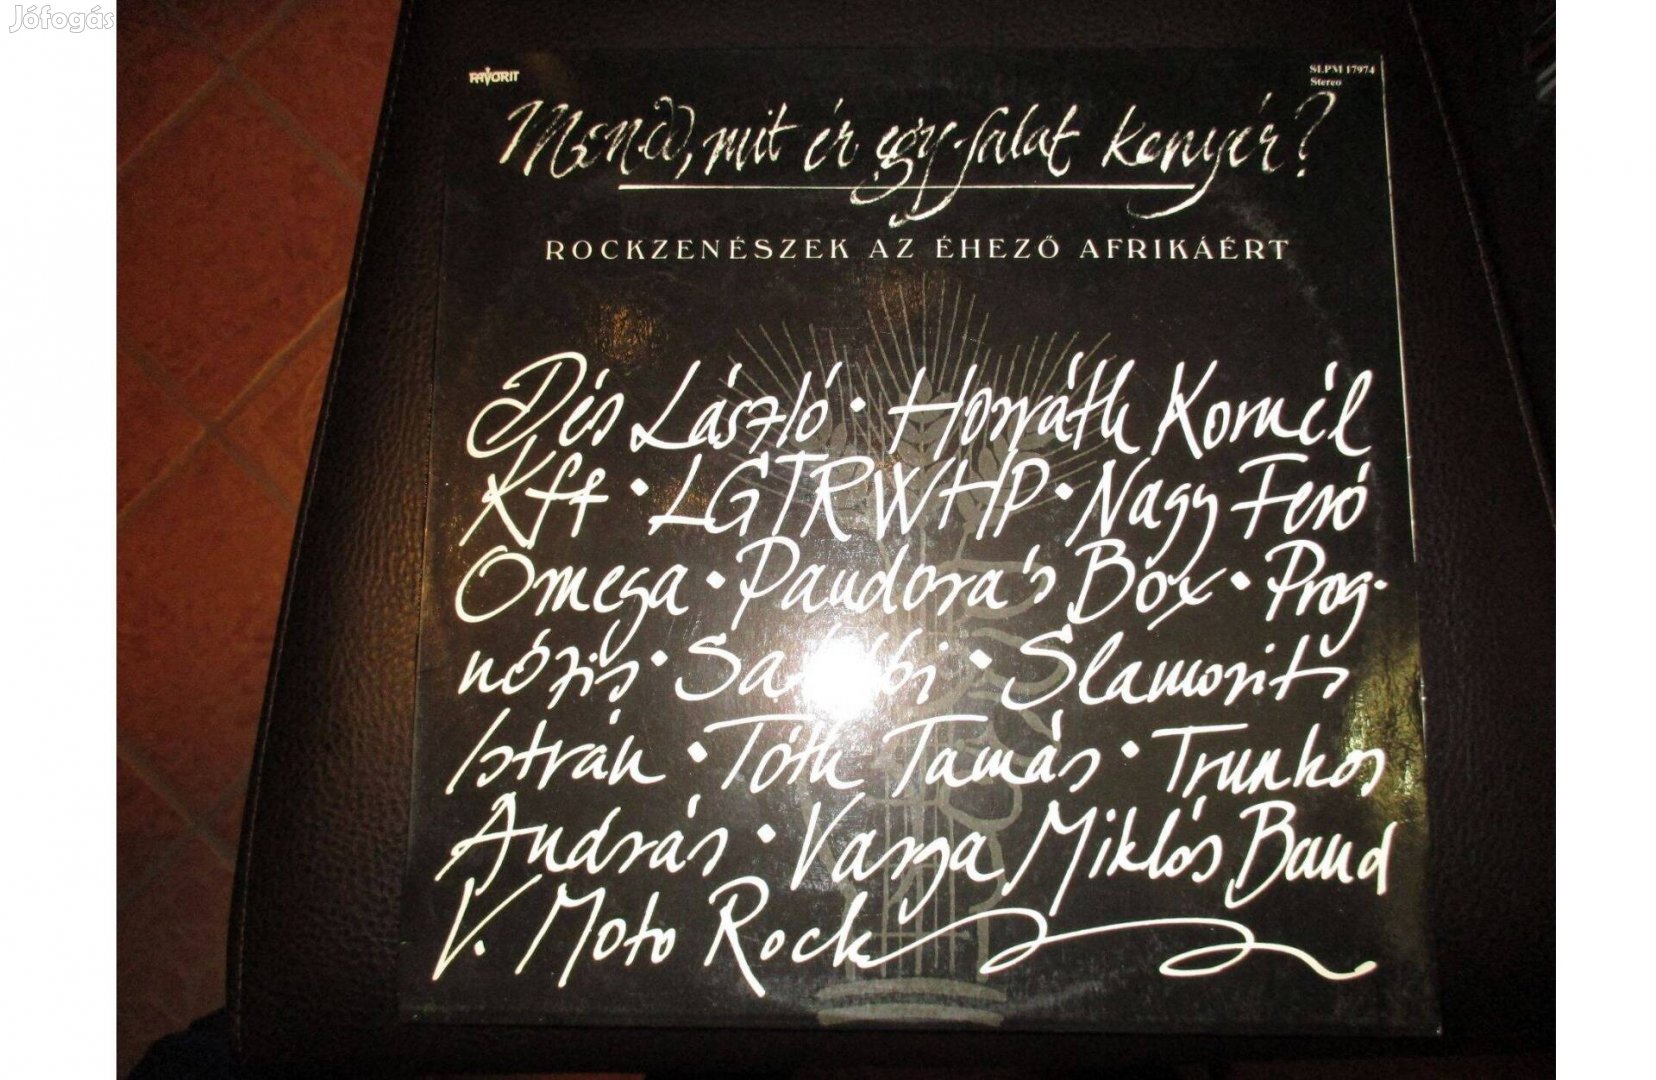 Jófogás
FAVORIT
SLPM 17974
Stereo
Mondd, mit ér egy falat kenyér?
ROCKZENÉSZEK AZ ÉHEZŐ AFRIKÁÉRT
Dés László • Horváth Kornél
Kft • LGTRWHP • Nagy Feró
Omega • Pandora's Box • Prog-
nózis • • Slamovits
István • Tóth Tamás • Trunkos
András • Varga Miklós Band
V. Moto Rock